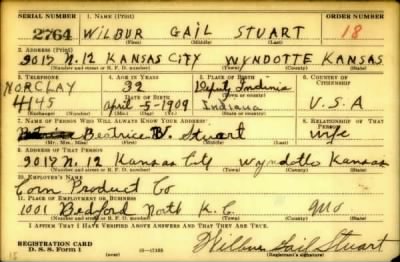 SERIAL NUMBER 1. NAME (Print) ORDER NUMBER
2764 WILBUR GAIL STUART 18
(First) (Middle) (Last)
2. ADDRESS (Print)
2017 N. 12 KANSAS CITY WYNDOTTE KANSAS
(Number and street or R. F. D. number) (Town) (County) (State)
3. TELEPHONE 4. AGE IN YEARS 5. PLACE OF BIRTH 6. COUNTRY OF CITIZENSHIP
NORCLAY 32 Indinia
DATE OF BIRTH
4145 April-5-1909 Indiana U.S.A
(Exchange) (Number) (Mo.) (Day) (Yr.) (State or country)
7. NAME OF PERSON WHO WILL ALWAYS KNOW YOUR ADDRESS 8. RELATIONSHIP OF THAT PERSON
Beatrice V. Stuart wife
(Mr., Mrs., Miss) (First) (Middle) (Last)
9. ADDRESS OF THAT PERSON
2017 N. 12 Kansas City Wyndotte Kansas
(Number and street or R. F. D. number) (Town) (County) (State)
10. EMPLOYER'S NAME
Corn Product Co
11. PLACE OF EMPLOYMENT OR BUSINESS
1001 Bedford North K.C. Mo
(Number and street or R. F. D. number) (Town) (County) (State)
I AFFIRM THAT I HAVE VERIFIED ABOVE ANSWERS AND THAT THEY ARE TRUE.
REGISTRATION CARD
D. S. S. FORM 1 (over) Wilbur Gail Stuart
(Registrant's signature)